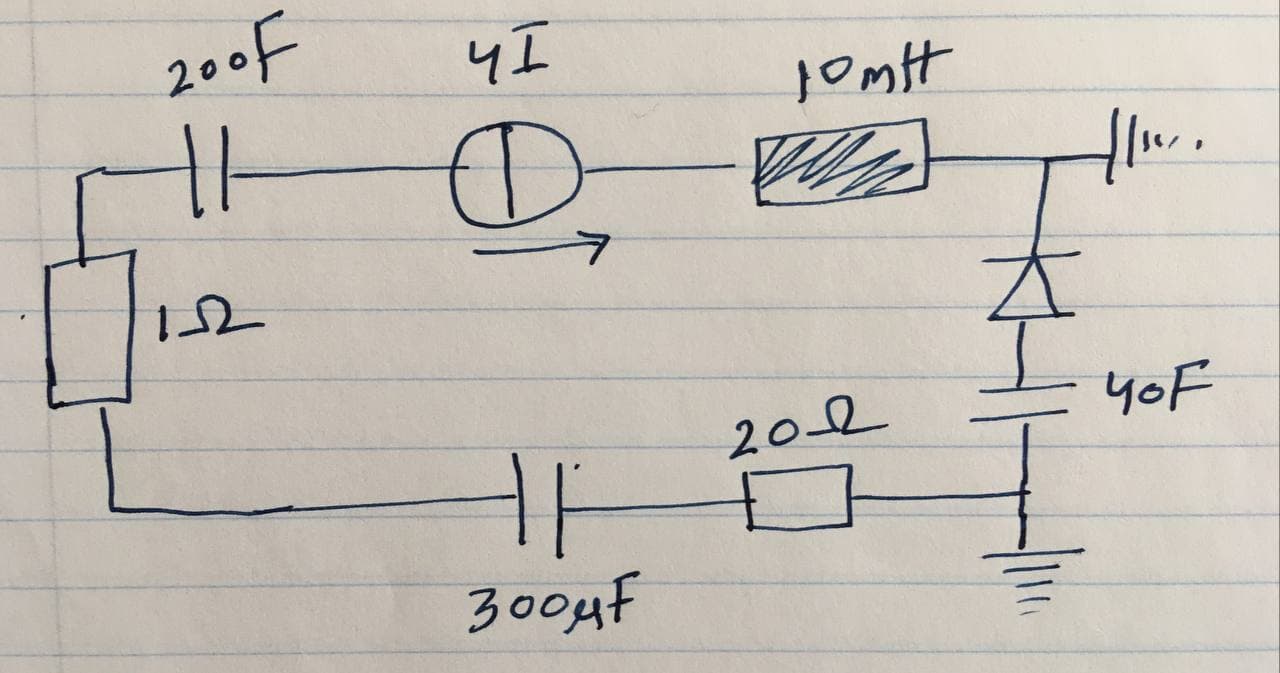 200F
4I
10mH
1Ω
40F
20Ω
300μF